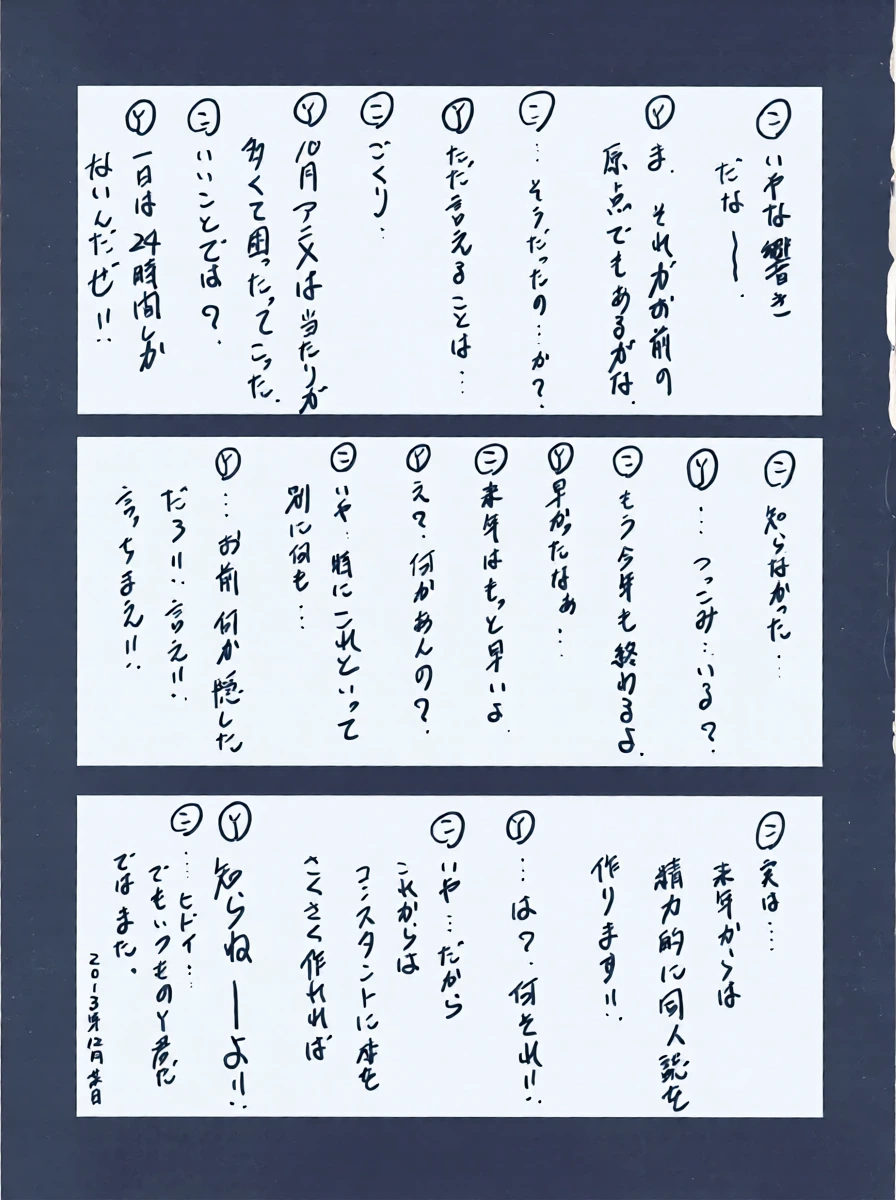 ㊁ いやな響き
だなー.
Ⓨ ま. それがお前の
原点でもあるがな.
㊁ … そうだったの…か?.
Ⓨ ただ言えることは…
㊁ ごくり.
Ⓨ 10月アニメは当たりが
多くて困ったってこった.
㊁ いいことでは?.
Ⓨ 一日は24時間しか
ないんだぜ!!
㊁ 知らなかった…
Ⓨ … つっこみ…いる?.
㊁ もう今年も終わるよ.
Ⓨ 早かったなぁ…
㊁ 来年はもっと早いよ.
Ⓨ え?. 何かあんの?.
㊁ いや. 特にこれといって
別に何も…
Ⓨ … お前何か隠した
だろ!!. 言え!!.
言っちまえ!!.
㊁ 実は…
来年からは
精力的に同人誌を
作ります!!.
Ⓨ … は?. 何それ!!.
㊁ いや… だから
これからは
コンスタントに本を
さくさく作れれば
Ⓨ 知らねーよ!!.
㊁ … ヒドイ…
でもいつものY君だ
ではまた。
2013年12月 日